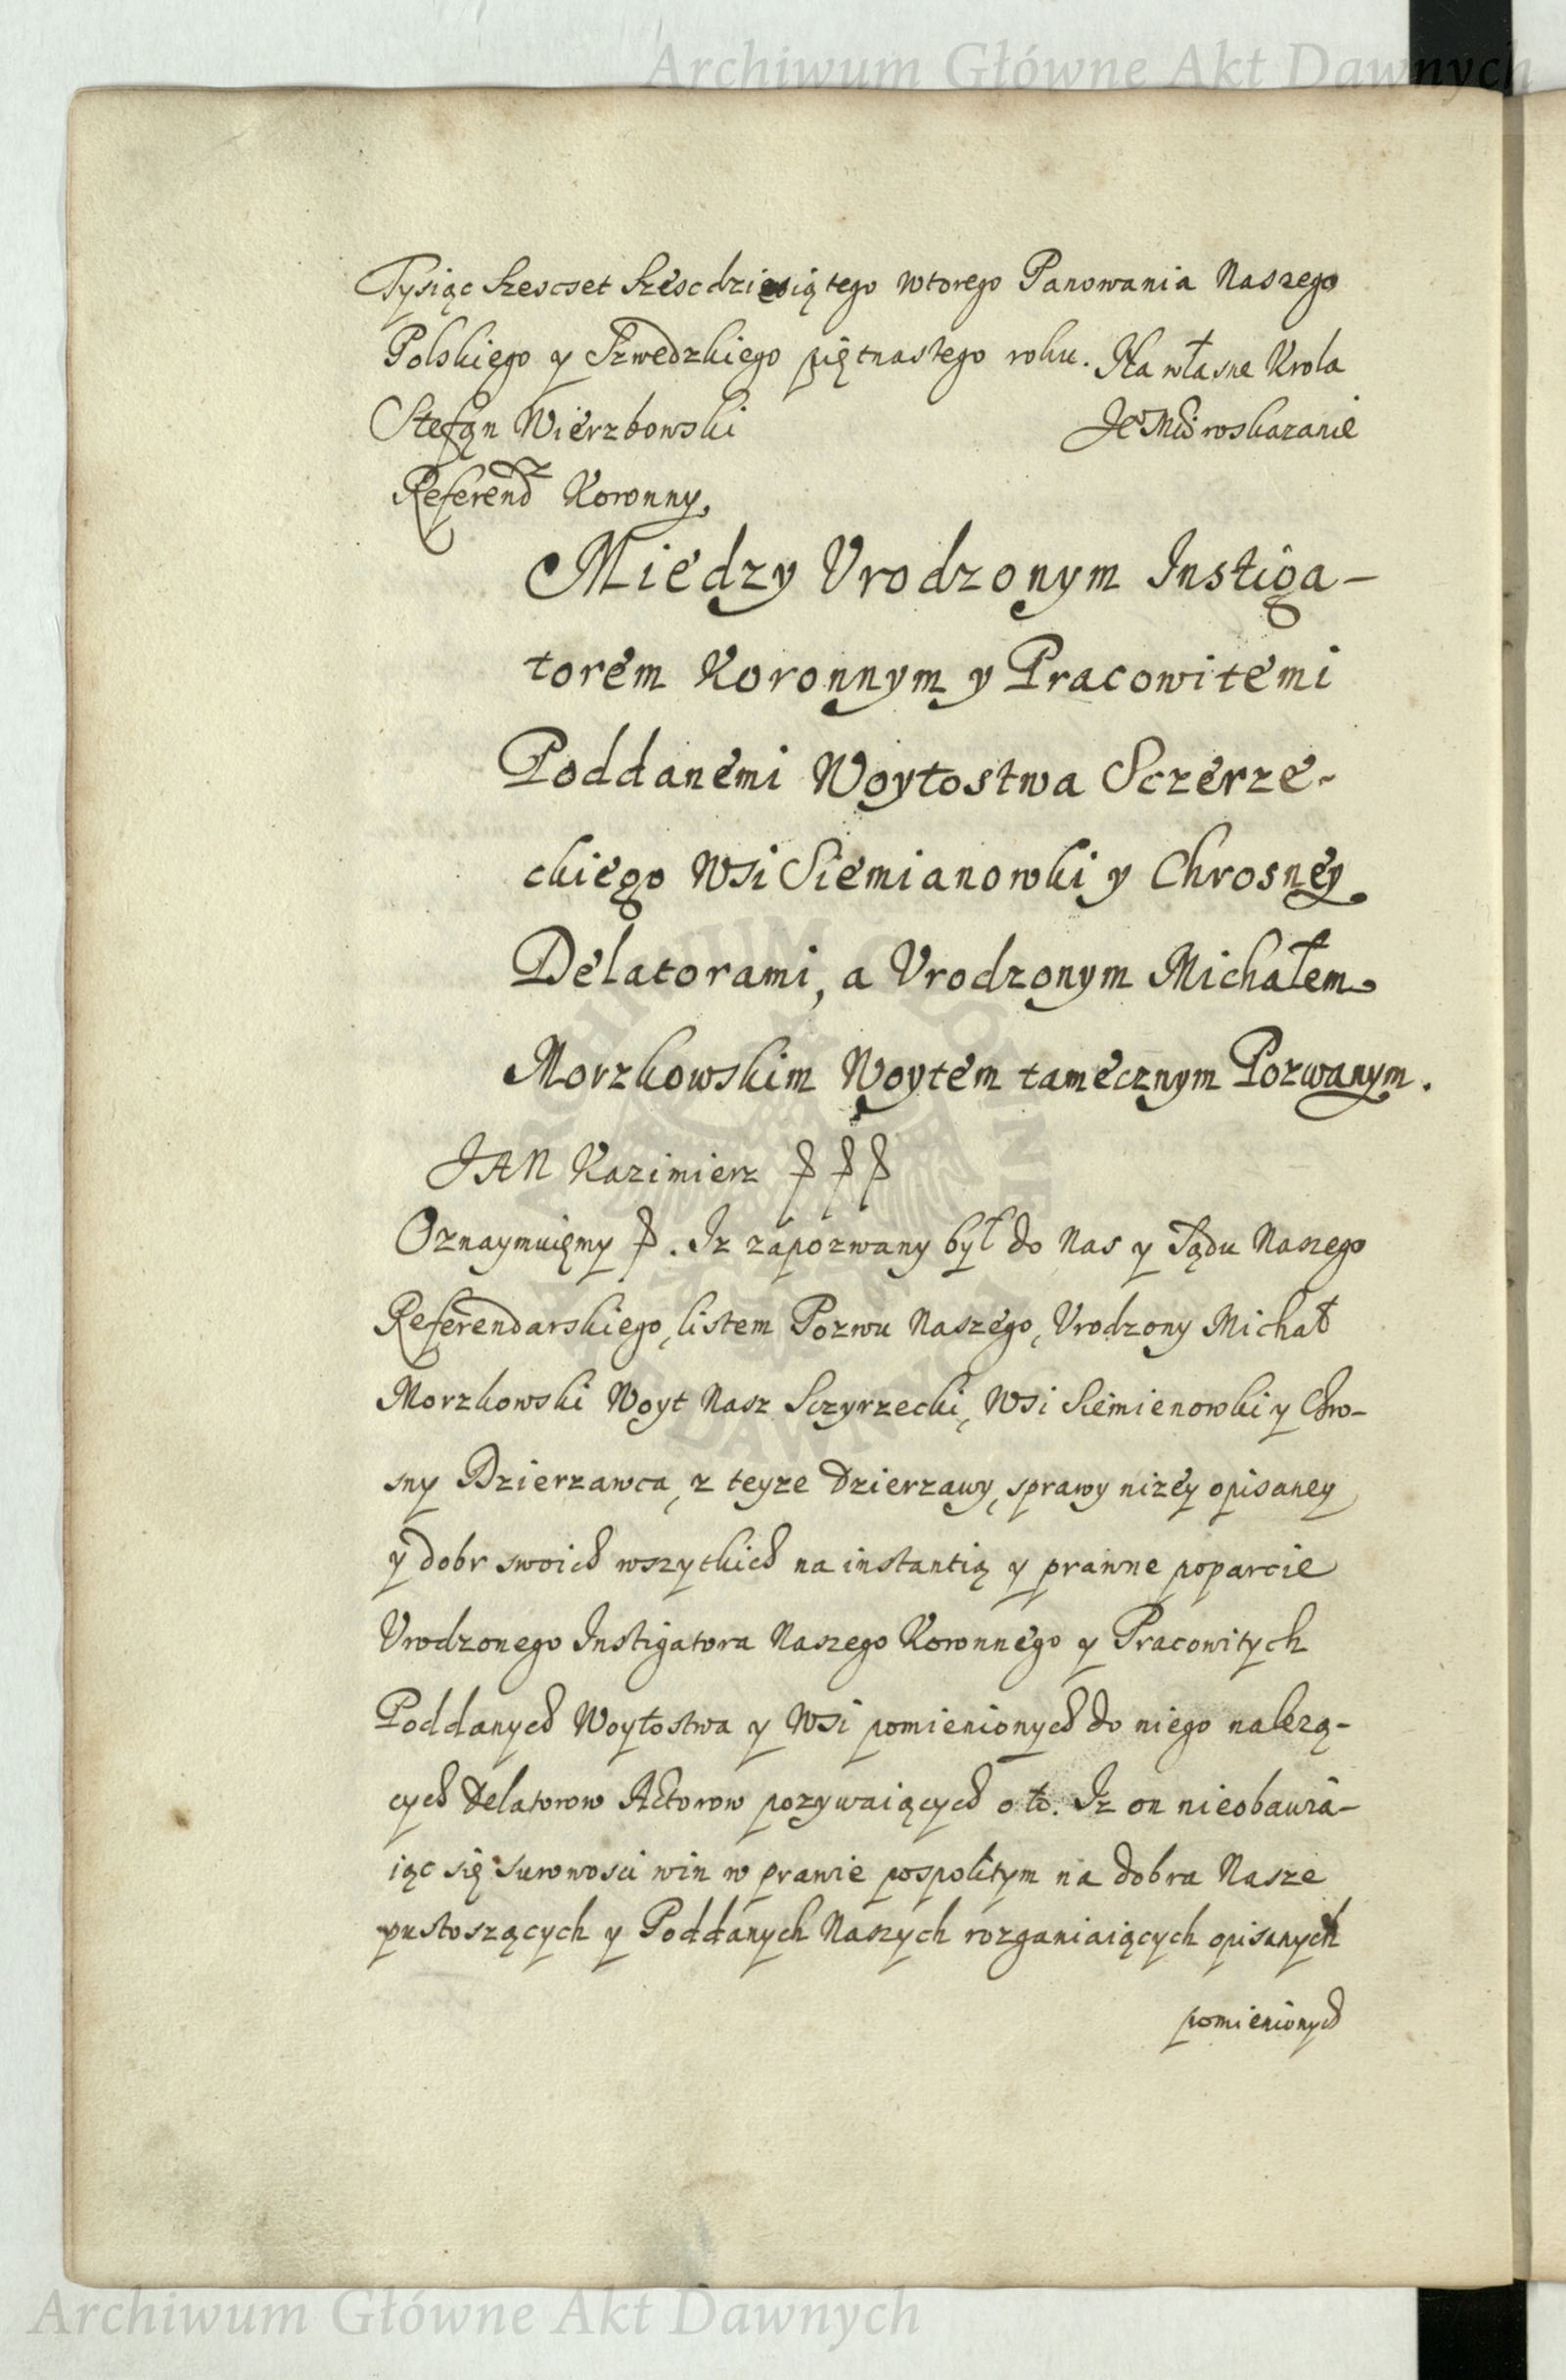 Archiwum Główne Akt Dawnych
Tysiąc Szescset Szescdziesiątego wtorego Panowania Naszego
Polskiego y Szwedzkiego piętnastego roku. Na własne Krola
Stefan Wierzbowski JeMści roskazanie
Referend Koronny,
Miedzy Vrodzonym Instiga-
torem Koronnym y Pracowitemi
Poddanemi Woytostwa Sczerze-
ckiego Wsi Siemianowki y Chrosney
Delatorami, a Vrodzonym Michałem
Morzkowskim Woytem tamecznym Pozwanym.
JAN Kazimierz
Oznaymuięmy. Iz zapozwany był do Nas y Sądu Naszego
Referendarskiego, listem Pozwu Naszego, Vrodzony Michał
Morzkowski Woyt Nasz Sczyrzecki, Wsi Siemienowki y Chro-
sny Dzierzawca, z teyze dzierzawy, sprawy nizey opisaney
y dobr swoich wszytkich na instantią y prawne poparcie
Vrodzonego Instigatora Naszego Koronnego y Pracowitych
Poddanych Woytostwa y Wsi pomienionych do niego nalezą-
cych Delatorow Aktorow pozywaiących o to. Iz on nieobawia-
iąc się surowosci win w prawie pospolitym na dobra Nasze
pustoszących y Poddanych Naszych rozganiaiących opisanych
pomienionych
Archiwum Główne Akt Dawnych